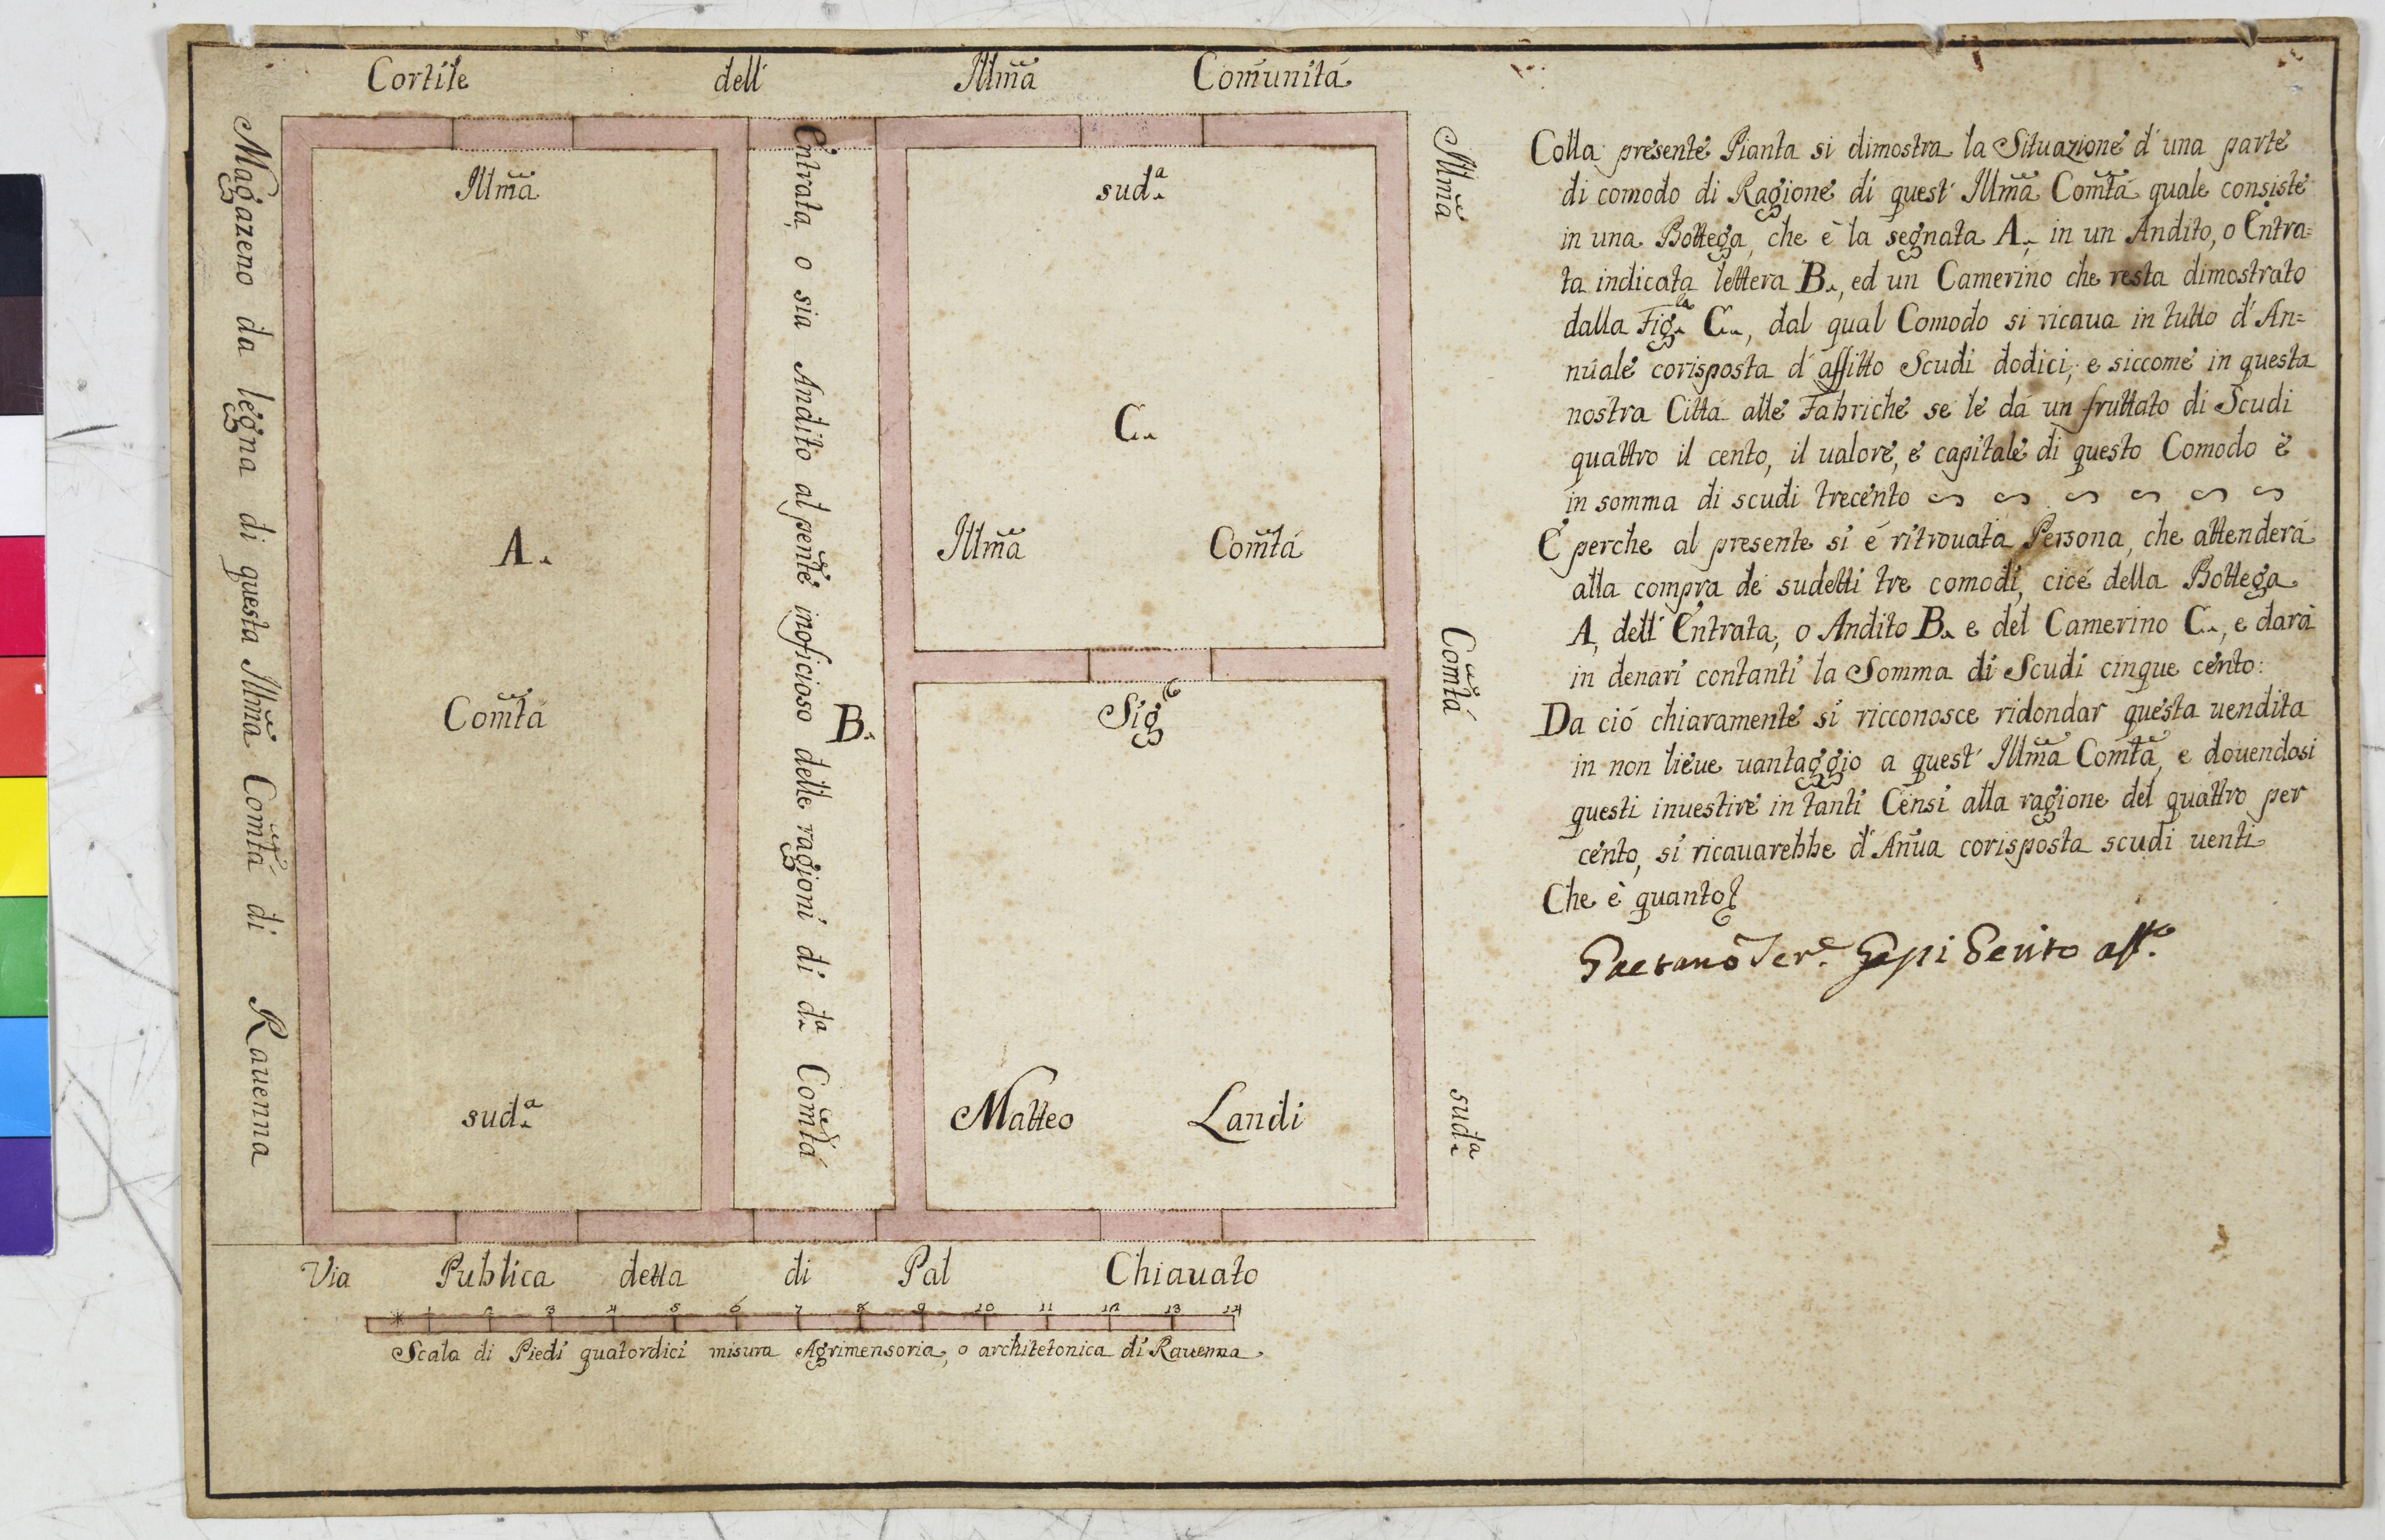 Cortile dell' Illm̃a Com̃unitá
Magazeno da legna di questa Illm̃a Com̃tá di Rauenna
Illm̃a
A.
Com̃tá
sud.ª
Entrata, o sia Andito al pẽnte inoficioso delle ragioni di d.ª Com̃tá
B.
sud.ª
C.
Illm̃a Com̃tá
Sig.
Matteo Landi
Illm̃a Com̃tá sud.ª
Via Publica detta di Pal Chiauato
* 1 2 3 4 5 6 7 8 9 10 11 12 13 14
Scala di Piedi quatordici misura Agrimensoria, o architetonica di Rauenna.
Colla presente Pianta si dimostra la Situazione d' una parte
di comodo di Ragione di quest' Illm̃a Com̃tá quale consiste
in una Bottega, che è la segnata A. in un Andito, o Entra=
ta indicata lettera B., ed un Camerino che resta dimostrato
dalla Fig.la C., dal qual Comodo si ricaua in tutto d' An=
nuale corisposta d' affitto Scudi dodici; e siccome in questa
nostra Cittá alle Fabriche se le dá un fruttato di Scudi
quattro il cento, il ualore, e capitale di questo Comodo è
in somma di scudi trecento
E perche al presente si é ritrouata Persona, che attenderá
alla compra de sudetti tre comodi, cioé della Bottega
A, dell' Entrata, o Andito B. e del Camerino C., e dará
in denari contanti la Somma di Scudi cinque cento:
Da ció chiaramente si ricconosce ridondar questa uendita
in non lieue uantaggio a quest' Illm̃a Com̃tá, e douendosi
questi inuestire in tanti Censi alla ragione del quattro per
cento, si ricauarebbe d' Añua corisposta scudi uenti
Che è quanto
Gaetano Perito